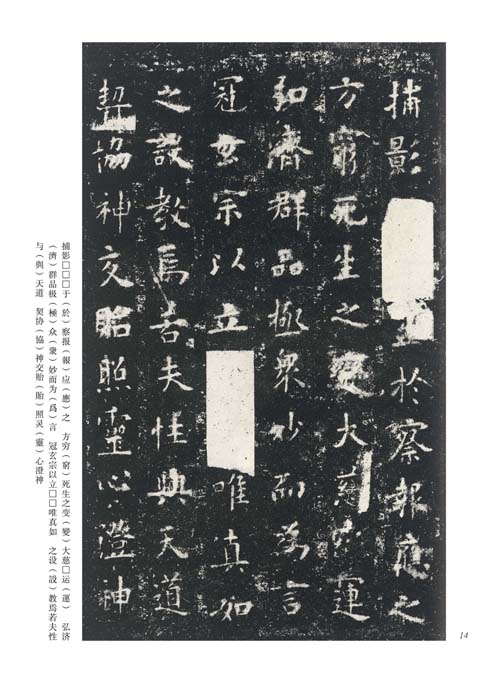 捕影於察報應之
方窮死生之變大慈運
弘濟群品極衆妙而為言
冠玄宗以立唯真如
之設教焉若夫性與天道
契協神交貽照靈心澄神
捕影□□□于（於）察报（報）应（應）之　方穷（窮）死生之变（變）大慈□运（運）　弘济
（濟）群品极（極）众（衆）妙而为（爲）言　冠玄宗以立□□唯真如　之设（設）教焉若夫性
与（與）天道　契协（協）神交贻（貽）照灵（靈）心澄神
14